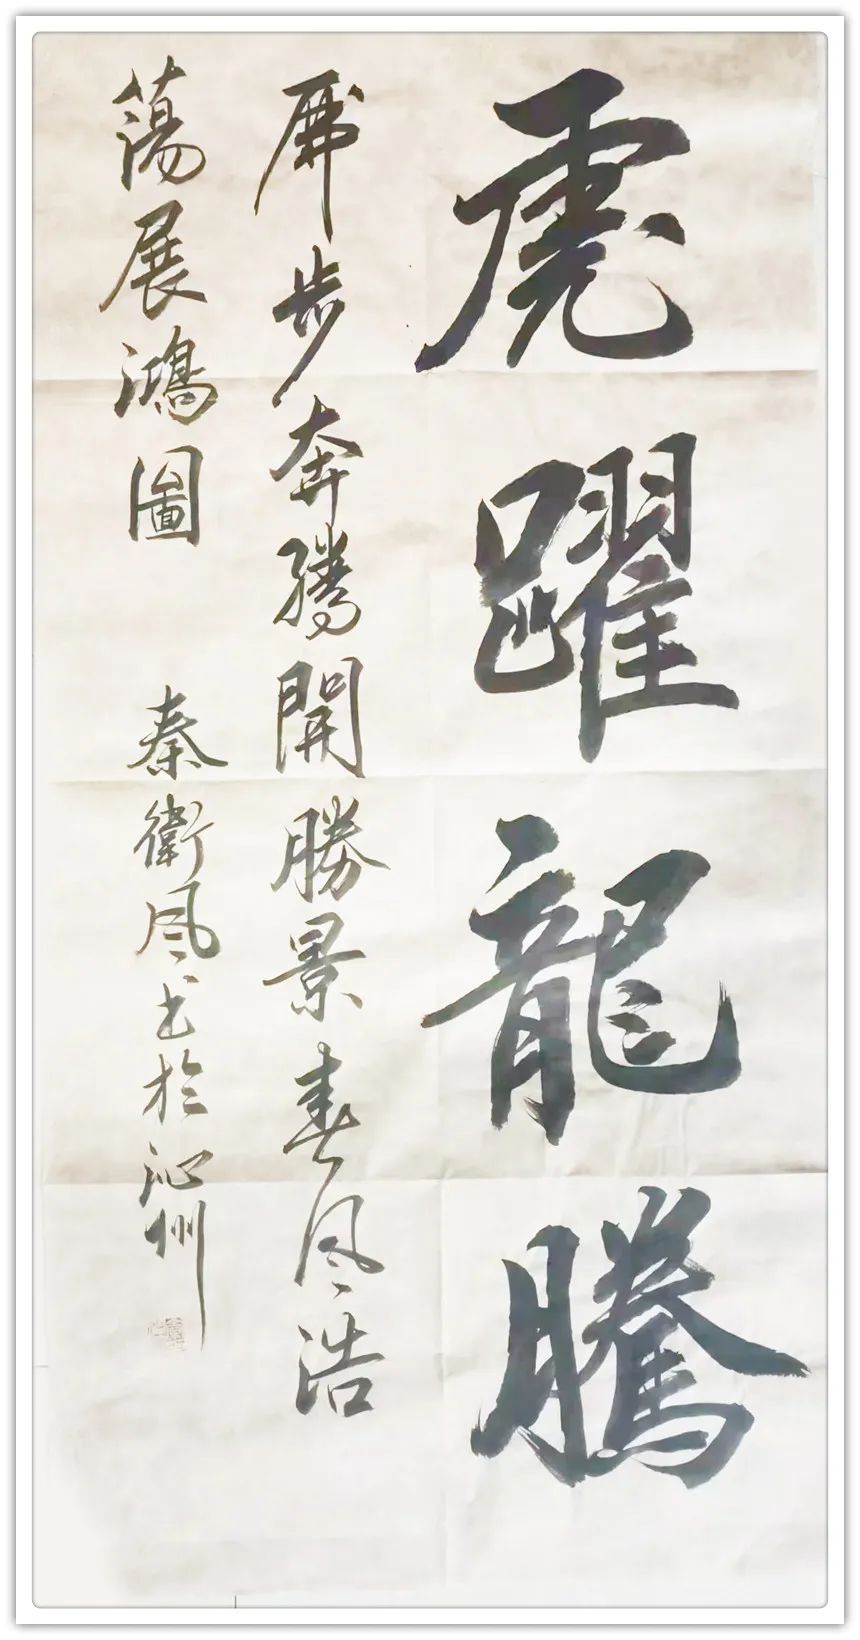 虎躍龍騰
虎步奔騰開勝景春風浩
蕩展鴻圖 秦衛風书於沁州